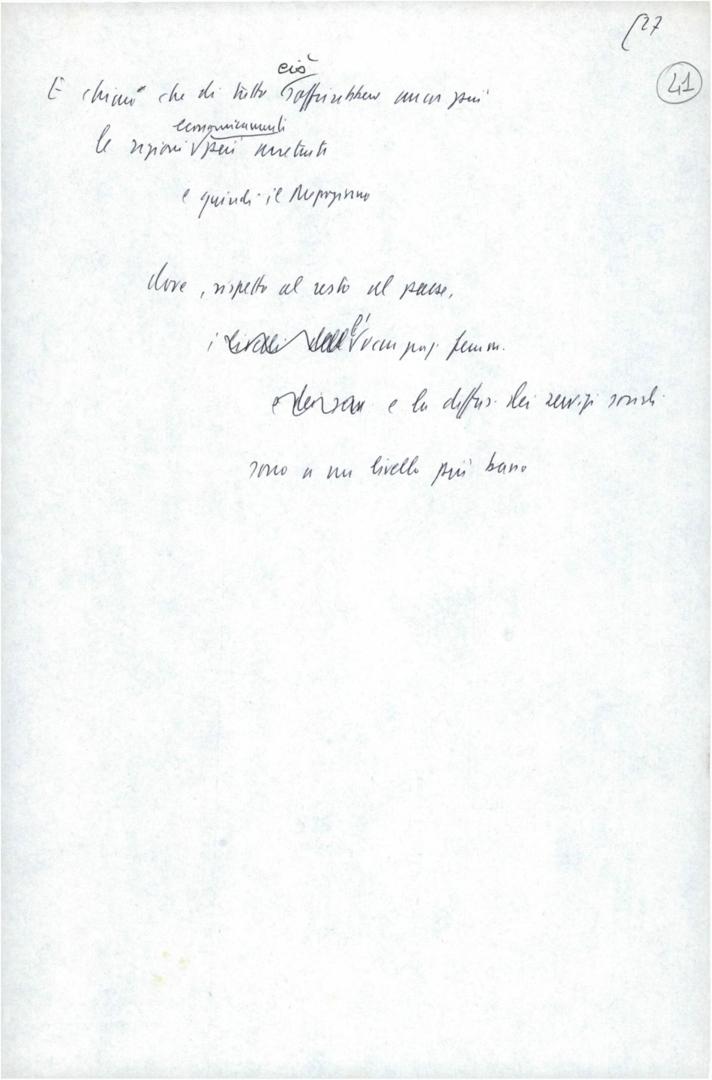 27
41
ciò
È chiaro che di tutto soffrirebbero ancor più
economicamente
le regioni più arretrate
e quindi il Mezzogiorno
dove, rispetto al resto del paese,
i livelli dell' l' femm.
e la diffus. dei servizi sociali
sono a un livello più basso